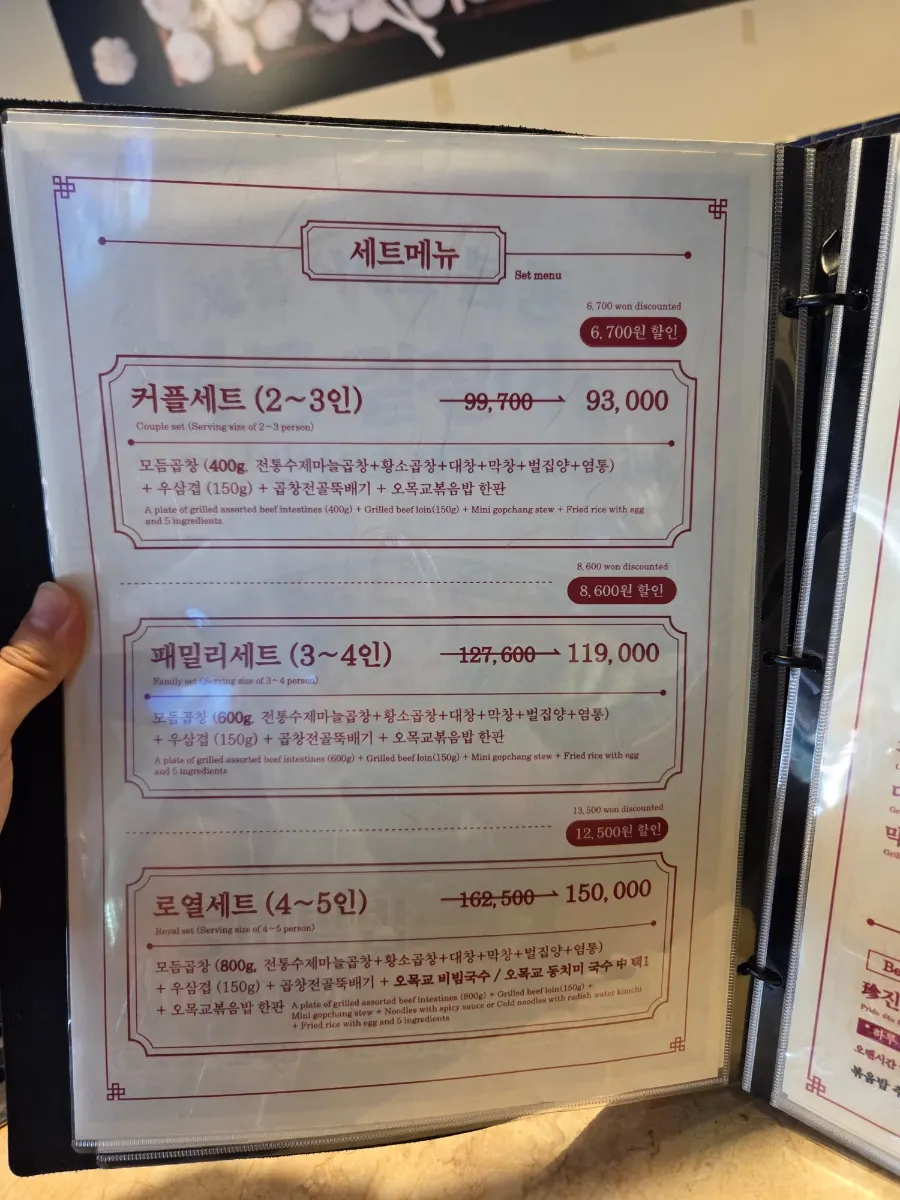 세트메뉴
Set menu
6,700 won discounted
6,700원 할인
커플세트 (2~3인) 99,700 93,000
Couple set (Serving size of 2~3 person)
모듬곱창 (400g, 전통수제마늘곱창+황소곱창+대창+막창+벌집양+염통)
+ 우삼겹 (150g) + 곱창전골뚝배기 + 오목교볶음밥 한판
A plate of grilled assorted beef intestines (400g) + Grilled beef loin(150g) + Mini gopchang stew + Fried rice with egg
and 5 ingredients
8,600 won discounted
8,600원 할인
패밀리세트 (3~4인) 127,600 119,000
Family set (Serving size of 3~4 person)
모듬곱창 (600g, 전통수제마늘곱창+황소곱창+대창+막창+벌집양+염통)
+ 우삼겹 (150g) + 곱창전골뚝배기 + 오목교볶음밥 한판
A plate of grilled assorted beef intestines (600g) + Grilled beef loin(150g) + Mini gopchang stew + Fried rice with egg
and 5 ingredients
13,500 won discounted
12,500원 할인
로열세트 (4~5인) 162,500 150,000
Royal set (Serving size of 4~5 person)
모듬곱창 (800g, 전통수제마늘곱창+황소곱창+대창+막창+벌집양+염통)
+ 우삼겹 (150g) + 곱창전골뚝배기 + 오목교 비빔국수 / 오목교 동치미 국수 中 택1
+ 오목교볶음밥 한판
A plate of grilled assorted beef intestines (800g) + Grilled beef loin(150g) +
Mini gopchang stew + Noodles with spicy sauce or Cold noodles with radish water kimchi
+ Fried rice with egg and 5 ingredients
珍진
오랜시간
볶음밥